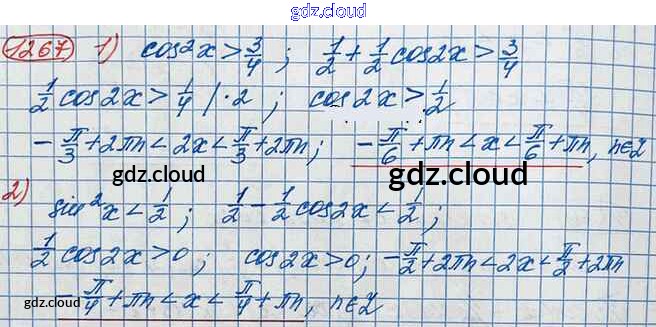 gdz.cloud
1267 1) cos²x > 3/4 ; 1/2 + 1/2 cos2x > 3/4
1/2 cos2x > 1/4 | · 2 ; cos2x > 1/2
-π/3 + 2πn < 2x < π/3 + 2πn ; -π/6 + πn < x < π/6 + πn, n∈Z
gdz.cloud gdz.cloud
2) sin²x < 1/2 ; 1/2 - 1/2 cos2x < 1/2 ;
1/2 cos2x > 0 ; cos2x > 0 ; -π/2 + 2πn < 2x < π/2 + 2πn
-π/4 + πn < x < π/4 + πn, n∈Z
gdz.cloud gdz.cloud